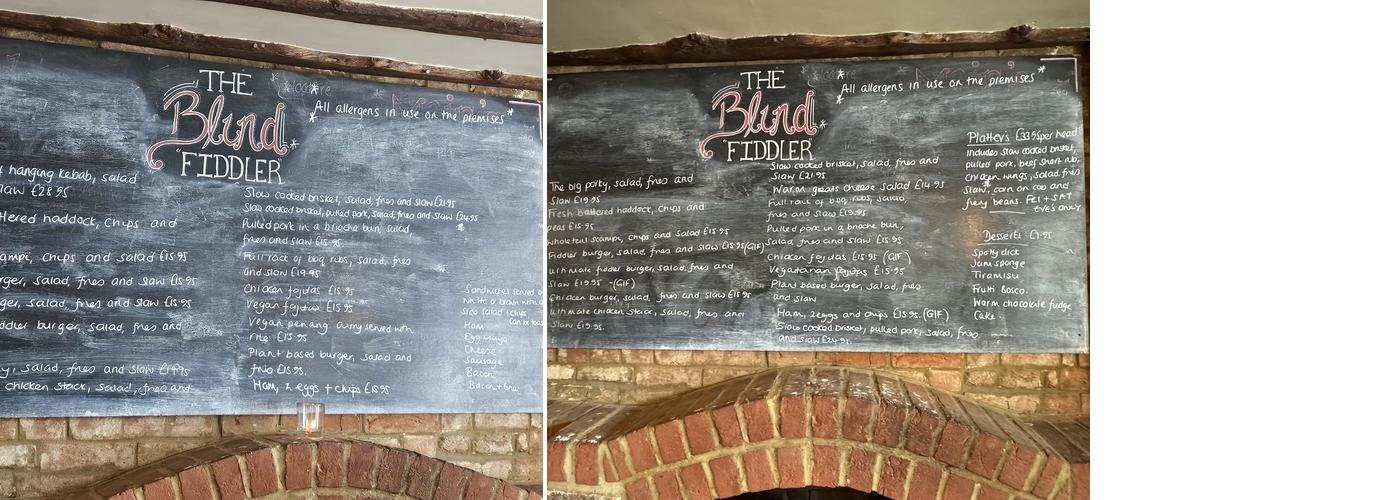 THE
Blind
"FIDDLER"
*
All allergens in use on the premises*
hanging kebab, salad
slaw £28.95
battered haddock, chips and
scampi, chips and salad £15.95
burger, salad, fries and slaw £15.95
burger, salad, fries and slaw £15.95
fiddler burger, salad, fries and
salad, fries and slaw £19.95
chicken stack, salad, fries and
Slow cooked brisket, salad, fries and slaw £21.95
Slow cooked brisket, pulled pork, salad, fries and slaw £24.95
*
Pulled pork in a brioche bun, salad,
fries and slaw £15.95
Full rack of bbq ribs, salad, fries
and slaw £19.95
Chicken fajitas £15.95
Vegan fajitas £15.95
Vegan penang curry served with
rice £15.95
Plant based burger, salad and
fries £15.95.
Ham, 2 eggs + chips £15.95
Sandwiches served on
white or brown with a
side salad + chips
Ham
Egg mayo
Cheese
Sausage
Bacon
THE
Blind
"FIDDLER"
*
All allergens in use on the premises*
The big porky, salad, fries and
slaw £19.95
Fresh battered haddock, chips and
peas £15.95
Wholetail scampi, chips and salad £15.95
Fiddler burger, salad, fries and slaw £15.95 (GIF)
Ultimate fiddler burger, salad, fries and
slaw £19.95 -(GIF)
Chicken burger, salad, fries and slaw £15.95
Ultimate chicken stack, salad, fries and
slaw £19.95.
Slow cooked brisket, salad, fries and
slaw £21.95
Warm goats cheese salad £14.95
Full rack of bbq ribs, salad,
fries and slaw £19.95
Pulled pork in a brioche bun,
salad, fries and slaw £15.95
Chicken fajitas £15.95 (GIF)
Vegetarian fajitas £15.95
Plant based burger, salad, fries
and slaw
Ham, 2 eggs and chips £15.95. (GIF)
Slow cooked brisket, pulled pork, salad, fries
and slaw £24.95.
Platters £33.95 per head
Includes slow cooked brisket,
pulled pork, beef short rib,
chicken wings, salad, fries
slaw, corn on cob and
fiery beans. FRI + SAT
EVE's only
Desserts £7.95
Spotty dick
Jam sponge
Tiramisu
Frutti Bosco.
Warm chocolate fudge
Cake.